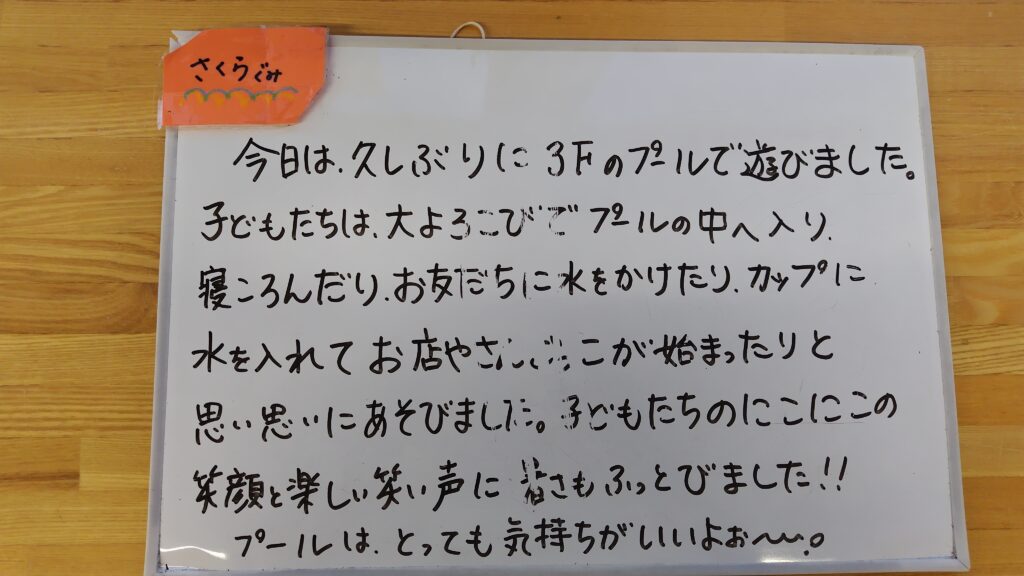 さくらぐみ
今日は、久しぶりに3Fのプールで遊びました。
子どもたちは、大よろこびでプールの中へ入り、
寝ころんだり、お友だちに水をかけたり、カップに
水を入れてお店やさんごっこが始まったりと
思い思いにあそびました。子どもたちのにこにこの
笑顔と楽しい笑い声に 暑さもふっとびました!!
プールは、とっても気持ちがいいよぉ〜。